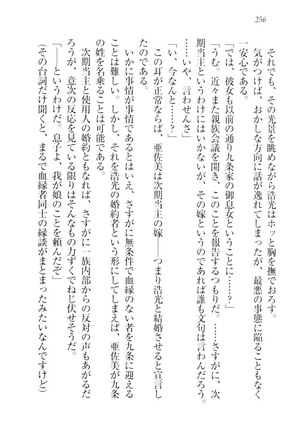 256
それでも、その光景を眺めながら浩光はホッと胸を撫でおろす。
気がつけば、おかしな方向に話が逸れてしまったが、最悪の事態に陥ることもなく
一安心である。
「では、彼女も以前の通り九条家の御息女ということに……？」
「うむ。近々また親族会議を開き、このことを報告するつもりだ。……さすがに、次
期当主というわけにはいかないが、その嫁というのであれば誰も文句は言わんだろう。
……いや、言わさんさ」
「い、今なんと……？」
この耳が正常ならば、亜佐美は次期当主の嫁――つまり浩光と結婚させると宣言し
たのである。
いかに事情が事情であるとはいえ、さすがに無条件で血縁のない者を九条に迎える
ことは難しい。しかし、それを浩光の婚約者という形にしてしまえば、亜佐美が九条
の姓を名乗ることができる。
次期当主と使用人の婚約ともなれば、さすがに一族内部からの反対の声もあるだ
ろうが、意次の反応を見ている限りはそんなもの力ずくでねじ伏せそうだ。
「――というわけだ。息子よ、我が娘のことを頼んだぞ」
（その台詞だけ聞くと、まるで血縁者同士の縁談がまとまったみたいなんですけど）